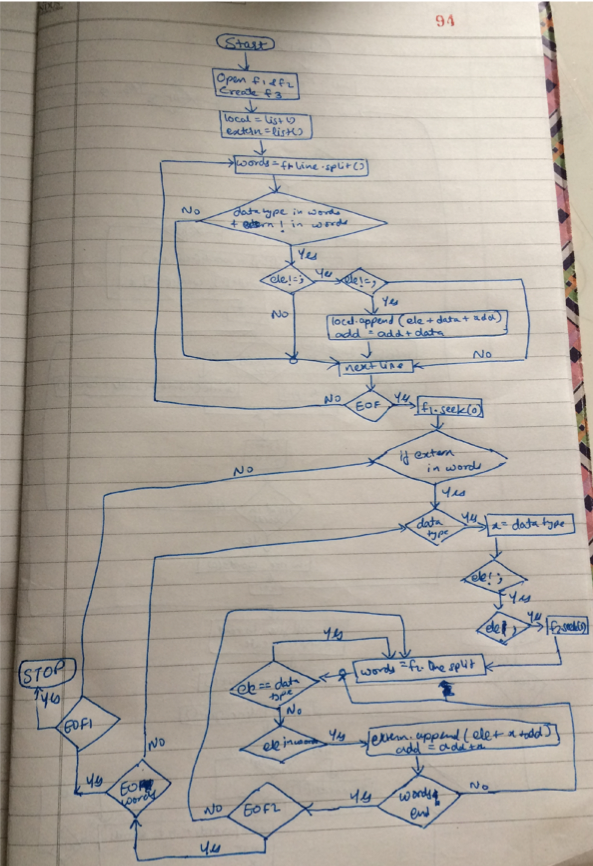 94
Start
Open f1 & f2
Create f3
local = list()
extern = list()
words = f1.line.split()
No
data type in words
+ extern ! in words
Yes
ele!=; Yes ele!=,
No Yes
local.append(ele+data+add)
add = add+data
next line No
No EOF Yes f1.seek(0)
No If extern
in words
Yes
data
type Yes x = data type
ele!;
Yes
ele!, Yes f2.seek()
Yes
STOP words = f2.line split
Yes ele == data
type
EOF1 No
No ele in words Yes extern.append(ele+x+add)
add = add+x
Yes EOF
words No EOF2 Yes words
end No
Yes